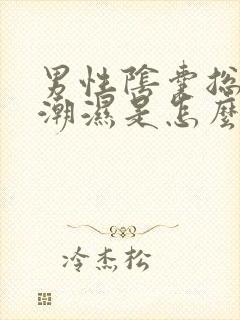 男性陰囊總
潮濕是怎麼
冷杰松